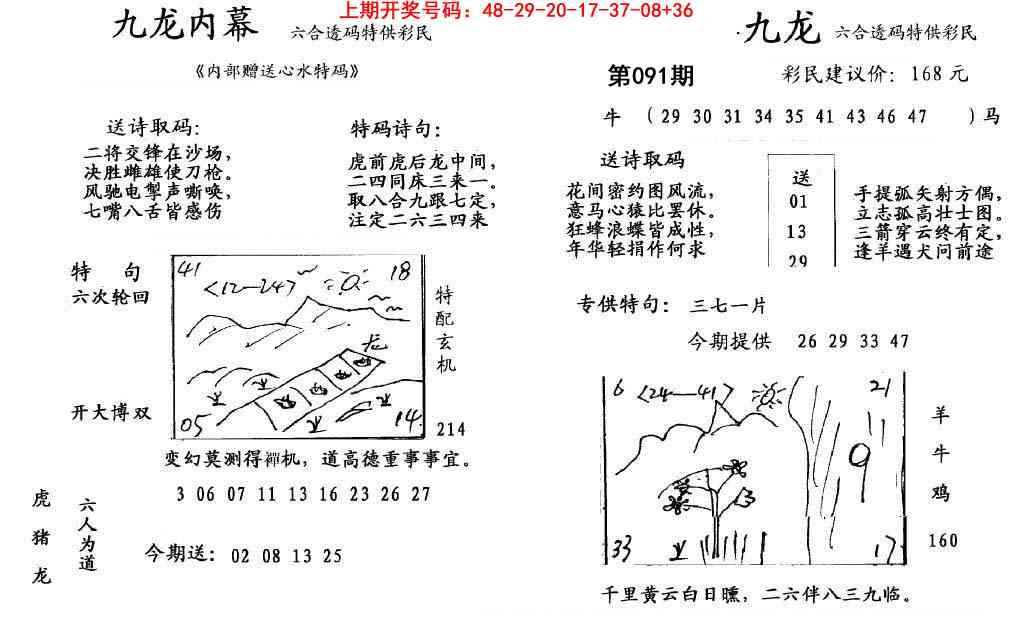 上期开奖号码：48-29-20-17-37-08+36
九龙内幕 六合透码特供彩民
《内部赠送心水特码》
送诗取码：
二将交锋在沙场，
决胜雌雄使刀枪。
风驰电掣声嘶唤，
七嘴八舌皆感伤
特码诗句：
虎前虎后龙中间，
二四同床三来一。
取八合九跟七定，
注定二六三四来
特 句
六次轮回
开大博双
41
18
<12—24>
龙
05
14
特配玄机
214
变幻莫测得禪机，道高德重事事宜。
3 06 07 11 13 16 23 26 27
虎
猪
龙
六人为道
今期送：02 08 13 25
·九龙 六合透码特供彩民
第091期 彩民建议价：168元
牛 （29 30 31 34 35 41 43 46 47 ）马
送诗取码
花间密约图风流，
意马心猿比罢休。
狂蜂浪蝶皆成性，
年华轻捐作何求
送
01
13
29
手提弧矢射方偶，
立志孤高壮士图。
三箭穿云终有定，
逢羊遇犬问前途
专供特句：三七一片
今期提供 26 29 33 47
6
<24—41>
21
9
33
17
羊
牛
鸡
160
千里黄云白日曛，二六伴八三九临。